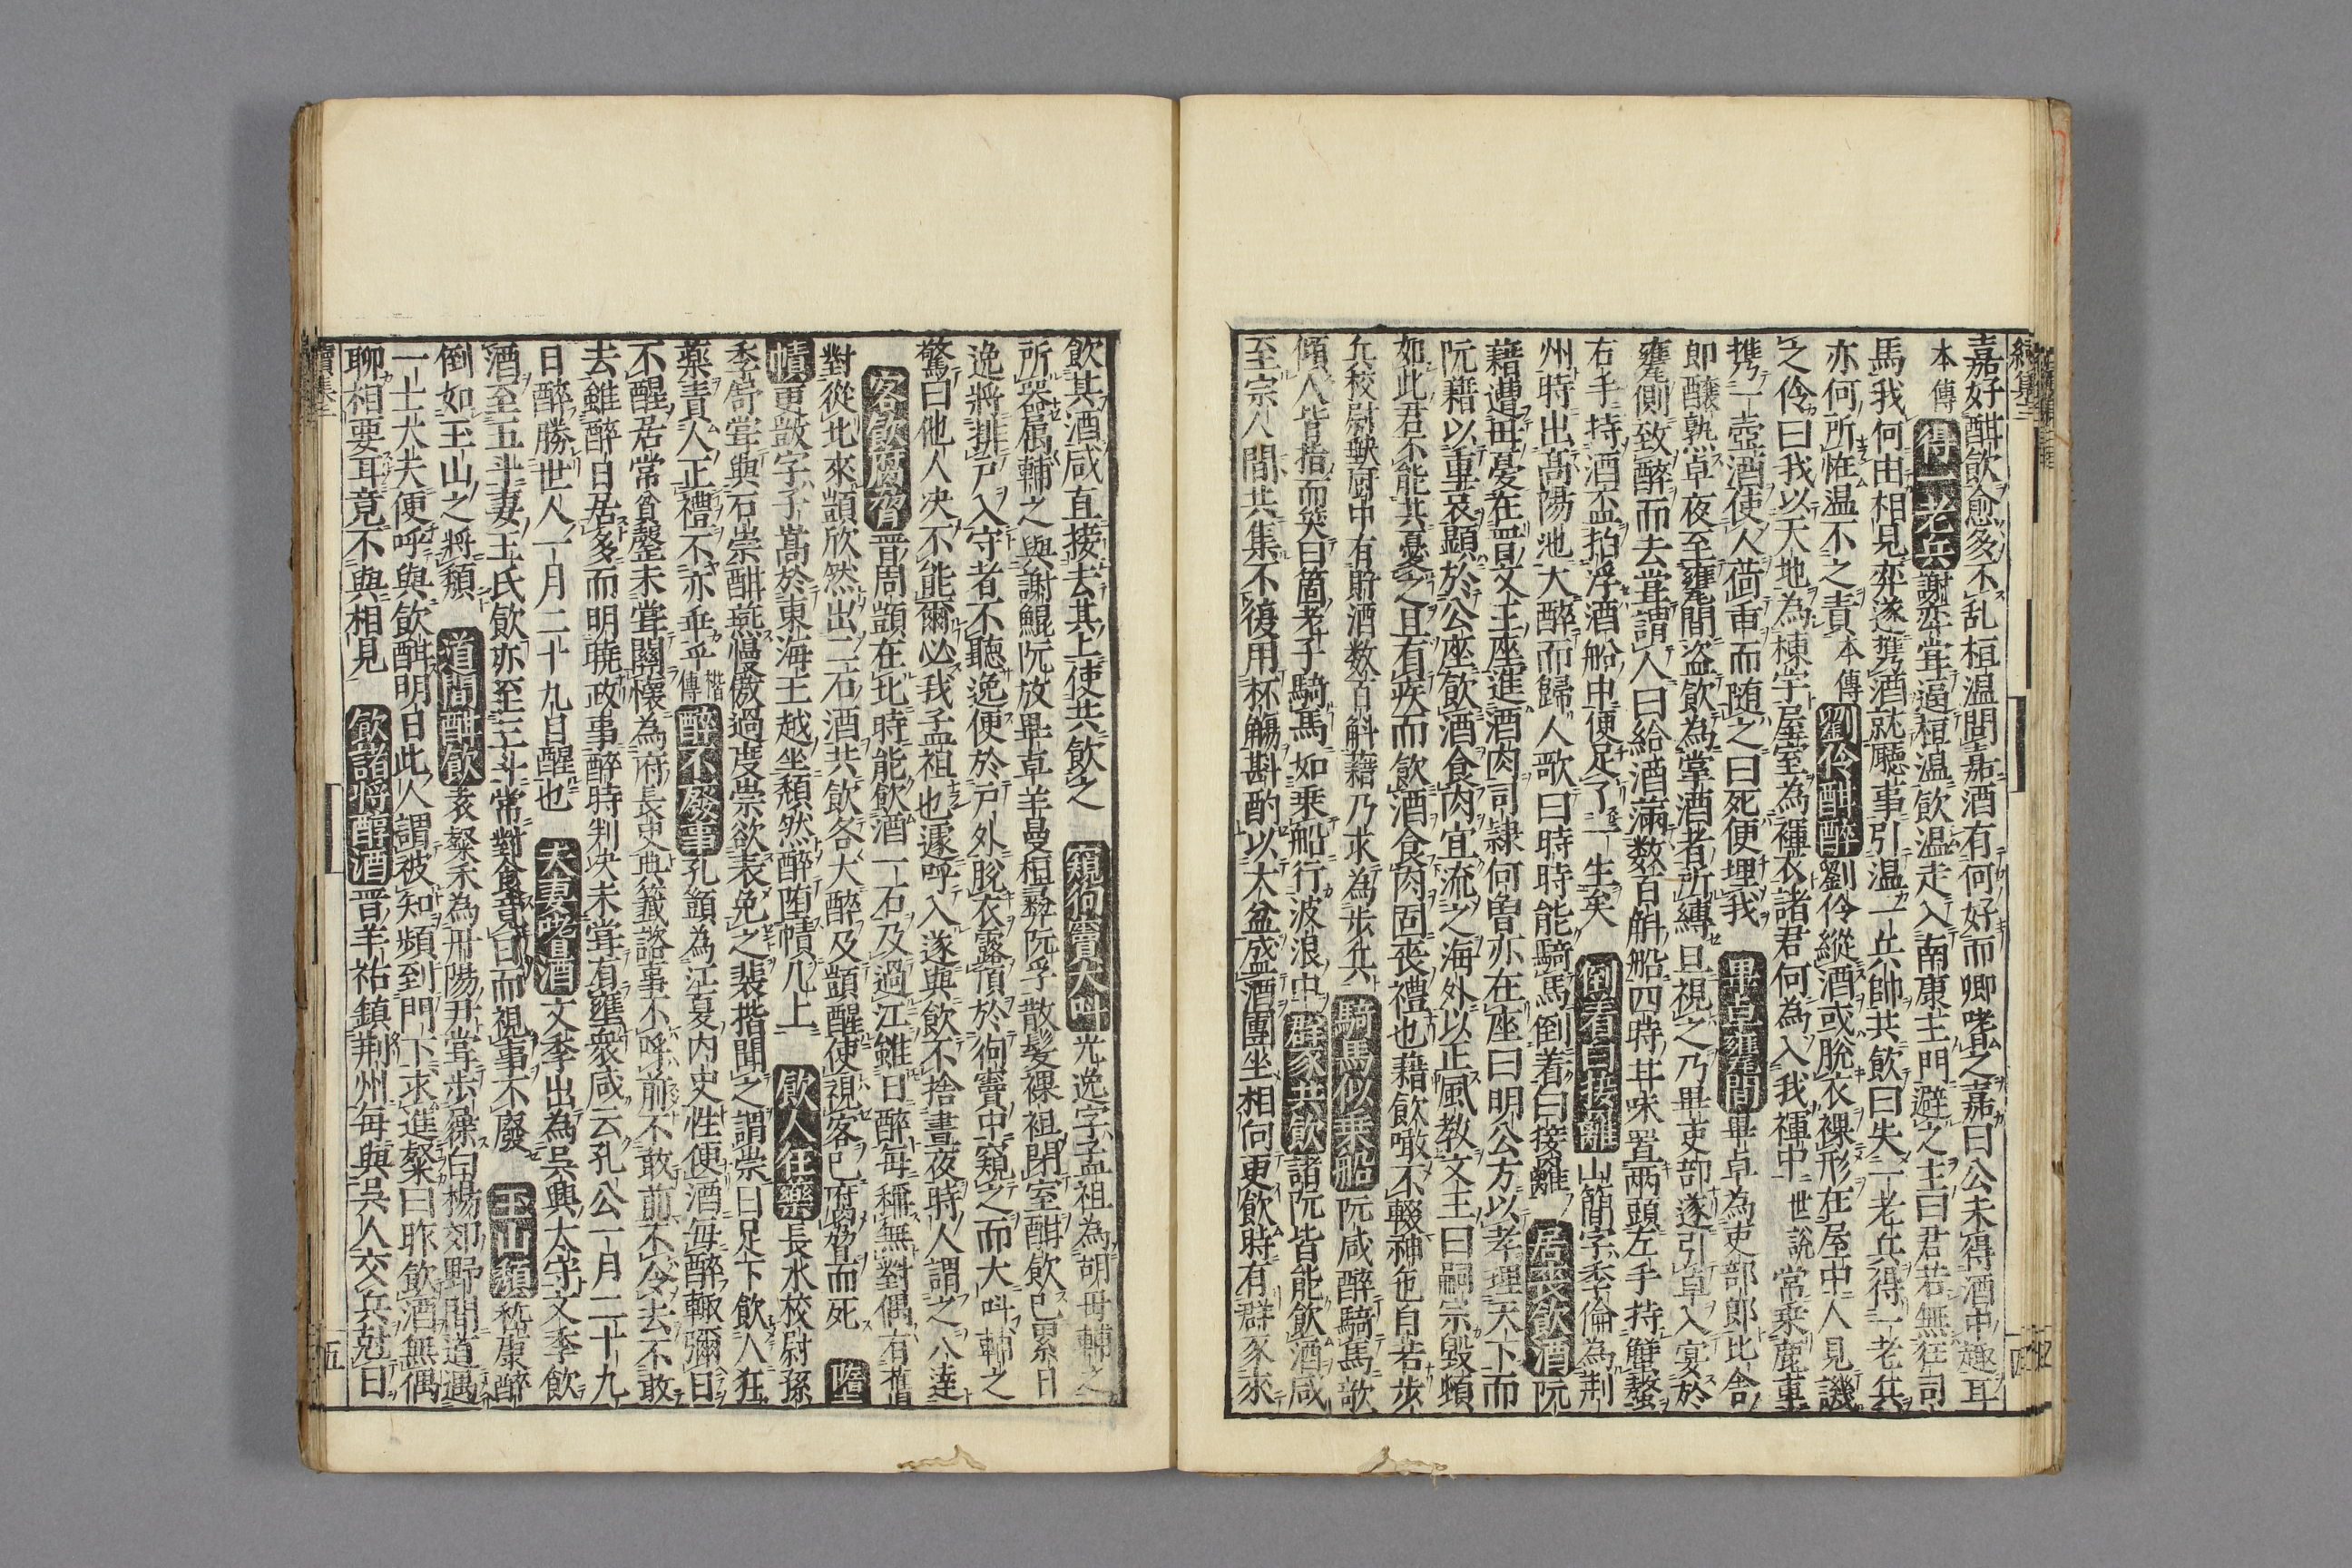 嘉好酣飲愈多不乱桓温問嘉酒有何好而卿嗜之嘉曰公未得酒中趣耳
本傳 得一老兵 謝奕嘗逼桓温飲温走入南康主門避之主曰君若無狂司
馬我何由相見奕遂携酒就廳事引温一兵帥共飲曰失一老兵得一老兵
亦何所恠温不之責 本傳 劉伶酣醉 劉伶縱酒或脫衣裸形在屋中人見譏
之伶曰我以天地為棟宇屋室為褌衣諸君何為入我褌中 世說 常乗鹿車
携一壺酒使人荷臿而随之曰死便埋我 畢卓甕間 畢卓為吏部郎比舍
郎釀熟卓夜至甕間盗飲為掌酒者所縛旦視之乃畢吏部遂引卓入宴於
甕側致醉而去嘗謂人曰給酒滿数百斛船四時甘味置兩頭左手持蟹螯
右手持酒盃拍浮酒船中便足了一生矣 倒着白接離 山簡字季倫為荆
州時出高陽池大醉而歸人歌曰時時能騎馬倒着白接離 居喪飲酒 阮
藉遭母憂在晋文王座進酒肉司隷何曽亦在座曰明公方以孝理天下而
阮藉以重哀顕於公座飲酒食肉宜流之海外以正風教文王曰嗣宗毀頓
如此君不能共憂之且有疾而飲酒食肉固喪禮也藉飲噉不輟神色自若步
兵校尉缺厨中有貯酒数百斛藉乃求為步兵 騎馬似乗船 阮咸醉騎馬歌
傾人皆指而笑曰箇老子騎馬如乗船行波浪中 群豕共飲 諸阮皆能飲酒咸
至宗人間共集不復用杯觴斟酌以大盆盛酒團坐相向更飲時有群豕來
飲其酒咸直接去其上使共飲之 窺狗竇大呌 光逸字孟祖為胡毋輔之
所器属輔之與謝鯤阮放畢卓羊曼桓彝阮孚散髮裸袒閉室酣飲已累日
逸將排戸入守者不聽逸便於戸外脫衣露頂於狗竇中窺之而大呌輔之
驚曰他人决不能爾必我孟祖也遽呼入遂與飲不捨晝夜時人謂之八達
客飲腐脅 晋周顗在北時能飲酒一石及過江雖日醉毎稱無對偶有舊
對從北來顗欣然出二石酒共飲各大醉及顗醒使視客已腐脅而死 墮
幘 更敱字子嵩於東海王越坐頽然醉堕幘几上 飲人狂藥 長水校尉孫
季舒嘗與石崇酣燕慢傲過度崇欲表免之裴揩聞之謂崇曰足下飲人狂
藥責人正禮不亦乖乎 揩傳 醉不廢事 孔顗為江夏内史性使酒毎醉輙彌日
不醒居常貧罄未嘗關懐為府長史典籖諮事不呼前不敢前不令去不敢
去雖醉日居多而明曉政事醉時判决未嘗有壅衆咸云孔公一月二十九
日醉勝世人一月二十九日醒也 夫妻嗜酒 文季出為呉興大守文季飲
酒至五斗妻王氏飲亦至三斗常對食竟日而視事不廢 玉山頽 嵇康醉
倒如玉山之將頽 道間酣飲 袁粲粲為丹陽尹嘗步屧白楊郊野間道遇
一士大夫便呼與飲酣明日此人謂被知頻到門下求進粲曰昨飲酒無偶
聊相要耳竟不與相見 飲諸將醇酒 晋羊祜鎮荆州每與呉人交兵尅日
續集三
五